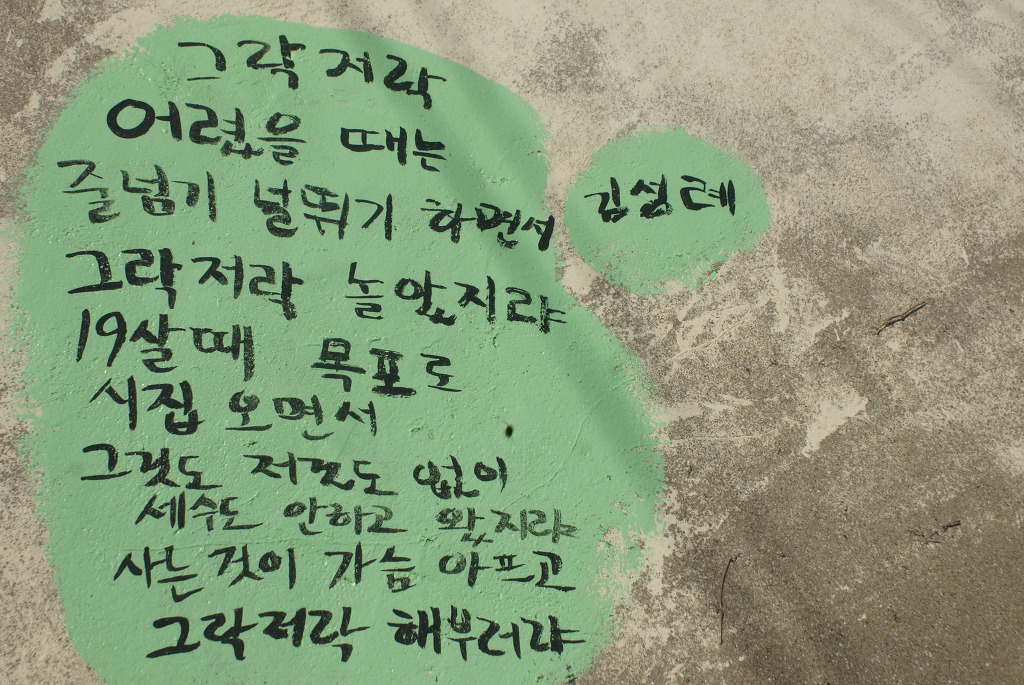 그락저락
어렸을 때는
줄넘기 널뛰기 하면서
그락저락 놀았지랴
19살때 목포로
시집 오면서
그것도 저것도 없이
세수도 안하고 왔지랴
사는것이 가슴 아프고
그락저락 해부러랴
김성례